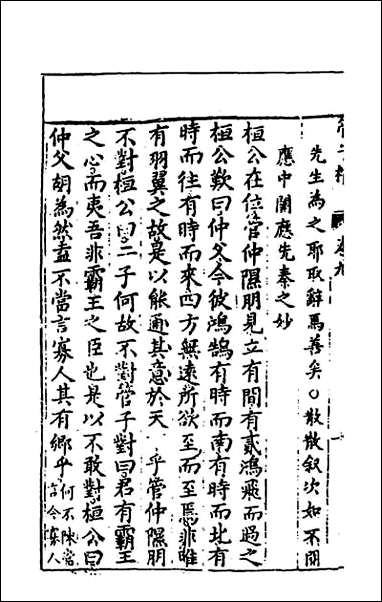 先生為之耶取辭焉善矣〇散散叙次如不関
應中関應先秦之妙
桓公在位管仲隰朋見立有間有貳鴻飛而過之
桓公歎曰仲父今彼鴻鵠有時而南有時而北有
時而往有時而來四方無遠所欲至而至焉非唯
有羽翼之故是以能通其意於天 乎管仲隰朋
不對桓公曰二子何故不對管子對曰君有霸王
之心而夷吾非霸王之臣也是以不敢對桓公曰
仲父胡為然盍不當言寡人其有鄉乎何不陳當言令寡人